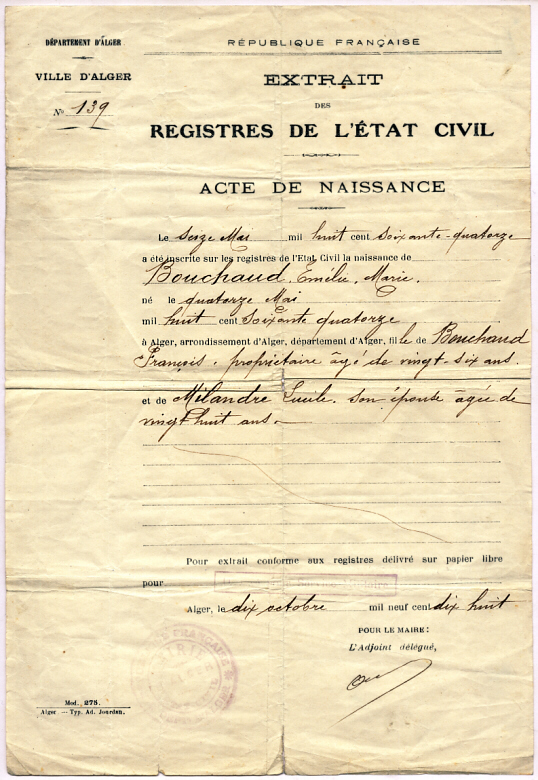 DÉPARTEMENT D'ALGER
VILLE D'ALGER
No 139
RÉPUBLIQUE FRANÇAISE
EXTRAIT
DES
REGISTRES DE L'ÉTAT CIVIL
ACTE DE NAISSANCE
Le seize Mai mil huit cent soixante-quatorze
a été inscrite sur les registres de l'Etat Civil la naissance de
Bouchaud, Emélie, Marie.
né le quatorze Mai
mil huit cent soixante quatorze
à Alger, arrondissement d'Alger, département d'Alger, fille de Bouchaud
François, propriétaire âgé de vingt-six ans.
et de Milandre Lucile, son épouse âgée de
vingt huit ans.
Pour extrait conforme aux registres délivré sur papier libre
pour
Alger, le dix octobre mil neuf cent dix huit
POUR LE MAIRE :
L'Adjoint délégué,
Mod. 275.
Alger — Typ. Ad. Jourdan.